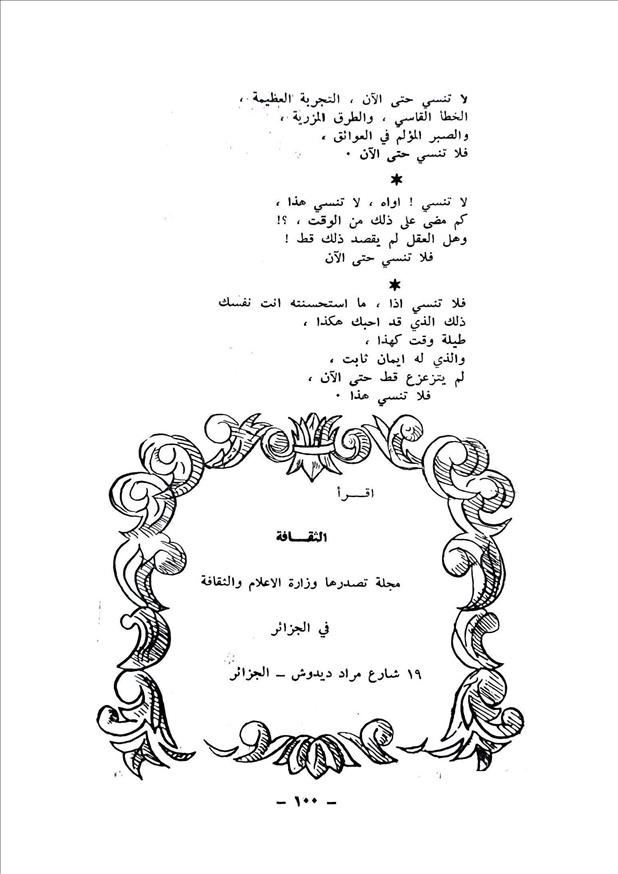 لا تنسي حتى الآن ، التجربة العظيمة ،
الخطا القاسي ، والطرق المزرية ،
والصبر المؤلم في العوائق ،
فلا تنسي حتى الآن .
*
لا تنسي ! اواه ، لا تنسي هذا ،
كم مضى على ذلك من الوقت ، ؟!
وهل العقل لم يقصد ذلك قط !
فلا تنسي حتى الآن
*
فلا تنسي اذا ، ما استحسنته انت نفسك
ذلك الذي قد احبك هكذا ،
طيلة وقت كهذا ،
والذي له ايمان ثابت ،
لم يتزعزع قط حتى الآن ،
فلا تنسي هذا .
اقــرأ
الثقــافة
مجلة تصدرها وزارة الاعلام والثقافة
في الجزائر
١٩ شارع مراد ديدوش ــ الجزائر
– ١٠٠ –